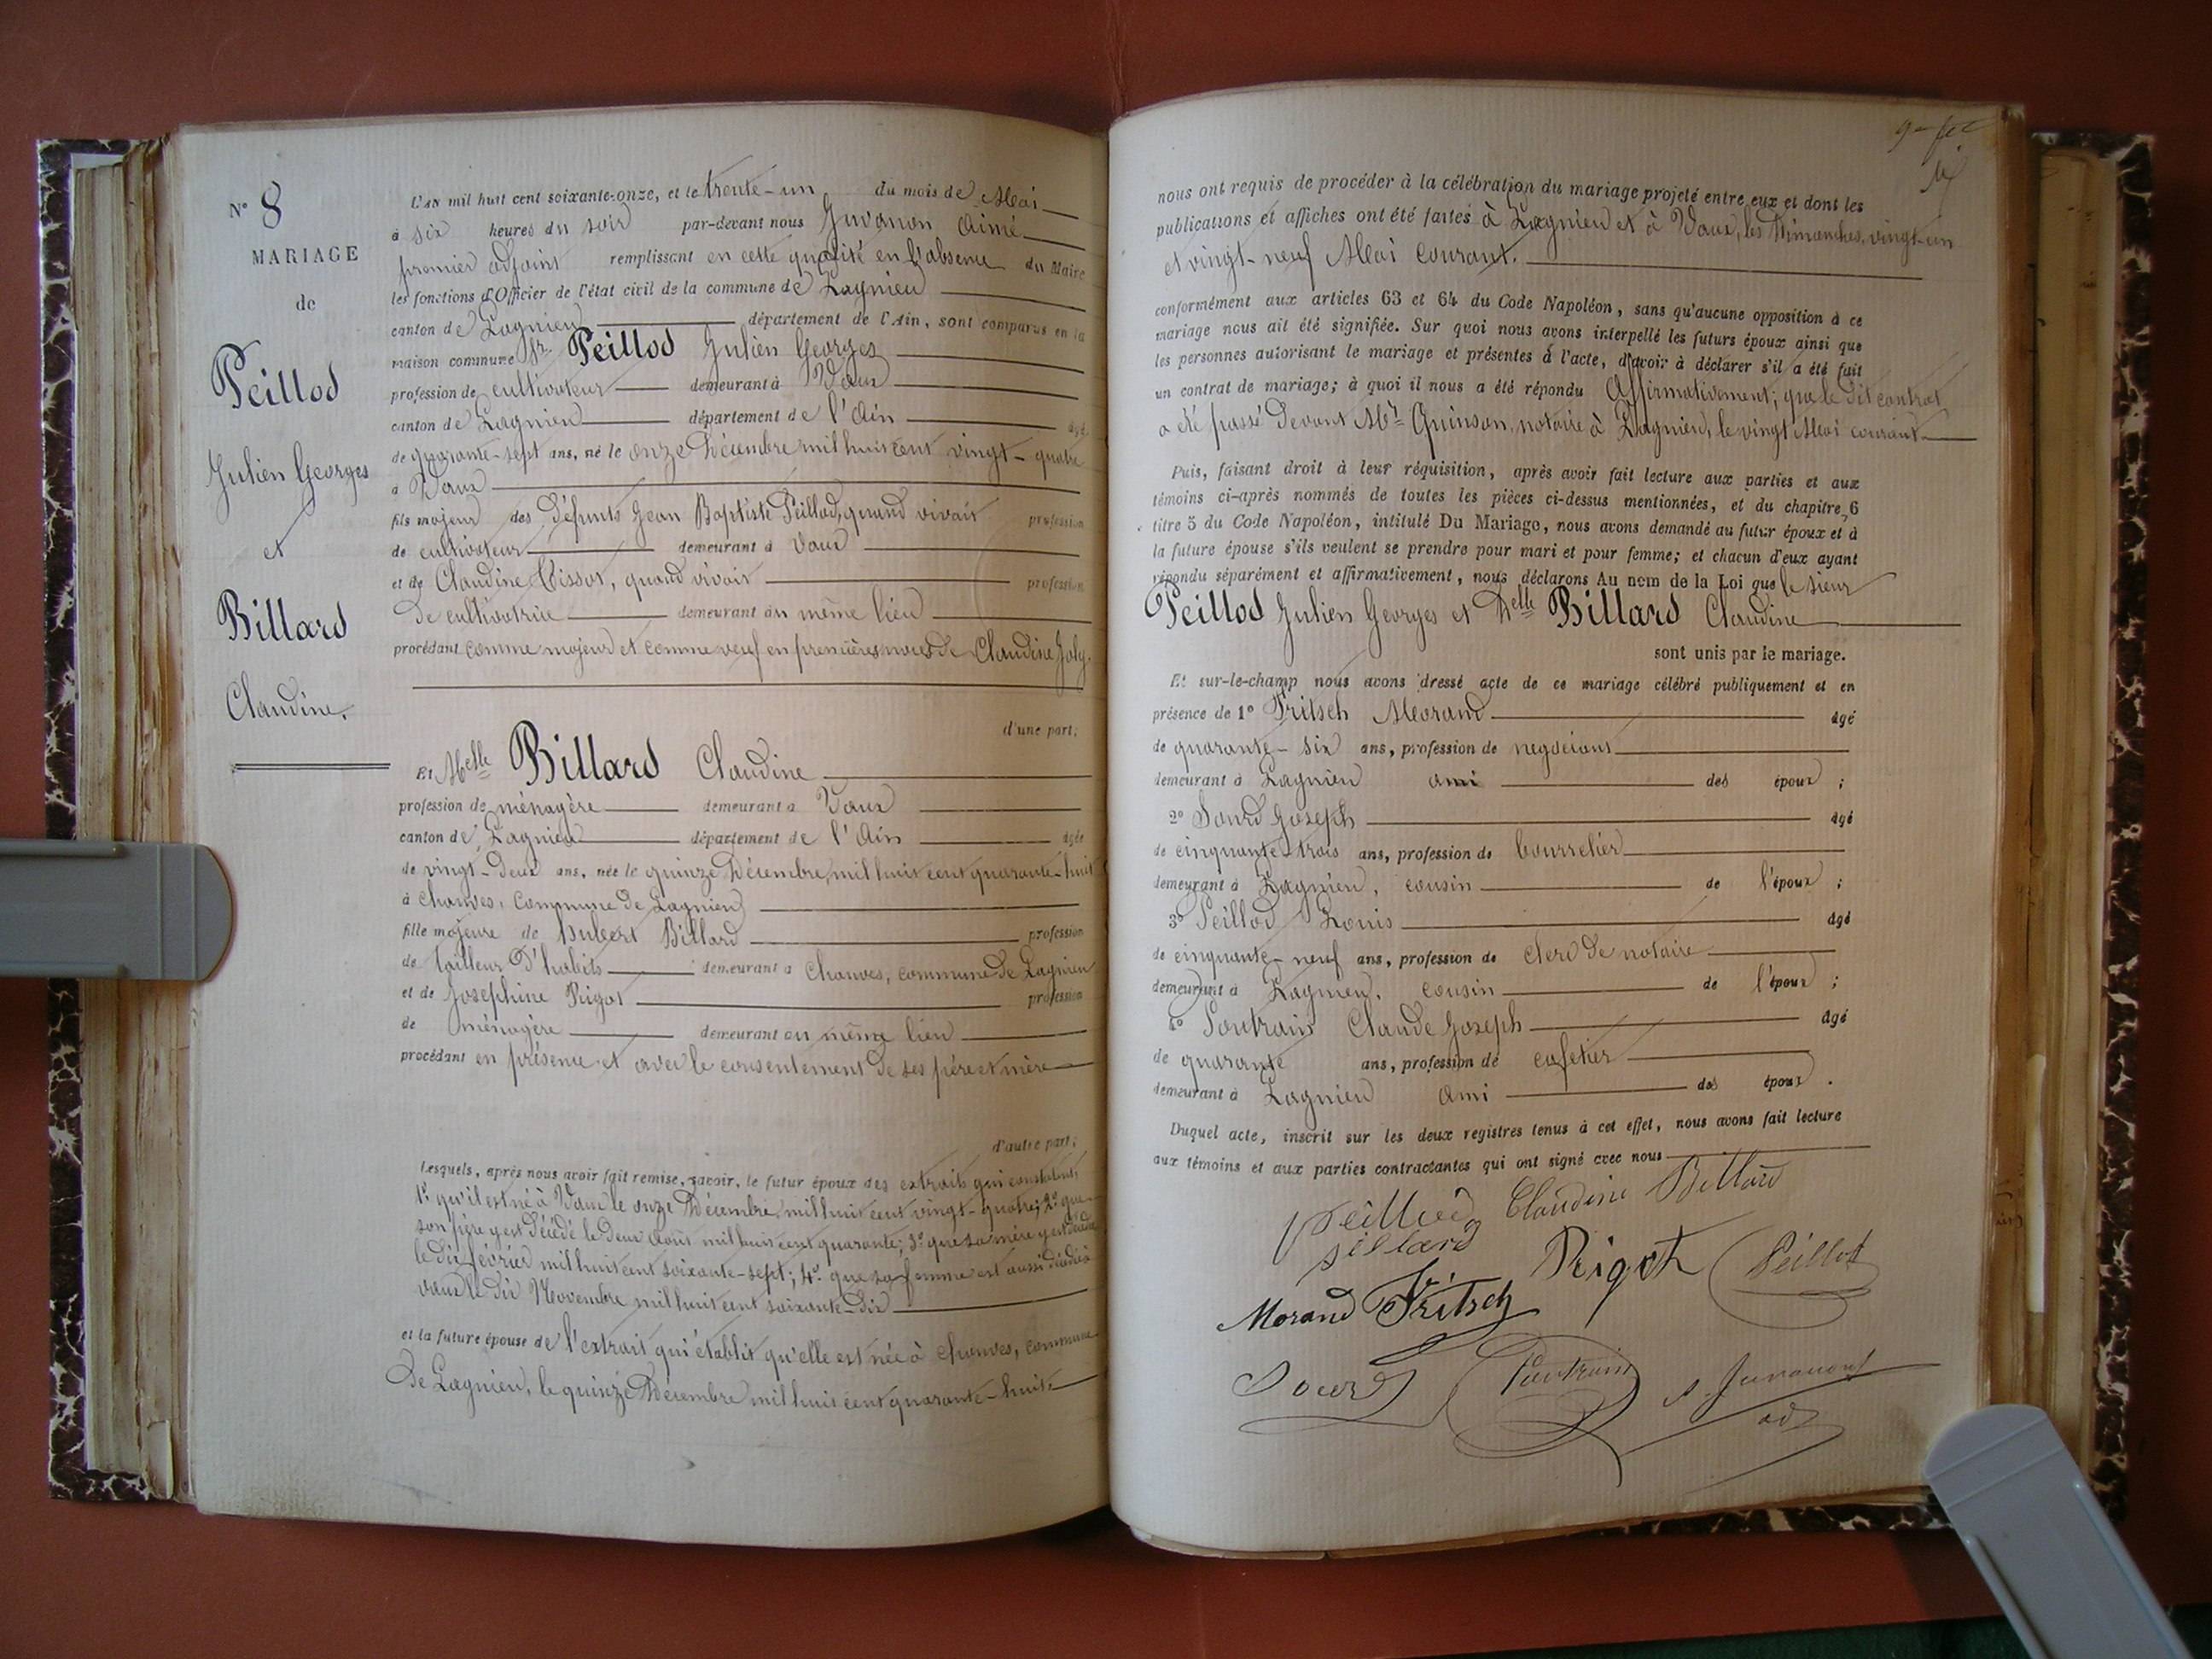 N° 8
MARIAGE
de
Peillod
Julien Georges
et
Billard
Claudine.
L'an mil huit cent soixante-onze, et le trente-un du mois de Mai
à six heures du soir par-devant nous Juvanon Aimé
premier adjoint remplissant en cette qualité en l'absence du Maire
les fonctions d'Officier de l'état civil de la commune de Lagnieu
canton de Lagnieu département de l'Ain, sont comparus en la
maison commune Sr. Peillod Julien Georges
profession de cultivateur demeurant à Vaux
canton de Lagnieu département de l'Ain âgé
de quarante-sept ans, né le onze Décembre mil huit cent vingt-quatre
à Vaux
fils majeur des défunts Jean Baptiste Peillod, quand vivait profession
de cultivateur demeurant à Vaux
et de Claudine Tissot, quand vivait profession
de cultivatrice demeurant au même lieu
procédant comme majeur et comme veuf en premières noces de Claudine Joly.
d'une part;
Et Melle Billard Claudine
profession de ménagère demeurant à Vaux
canton de Lagnieu département de l'Ain âgée
de vingt-deux ans, née le quinze Décembre, mil huit cent quarante-huit
à Chanves, Commune de Lagnieu
fille majeure de Hubert Billard profession
de tailleur d'habits demeurant à Chanves, commune de Lagnieu
et de Josephine Rigot profession
de ménagère demeurant au même lieu
procédant en présence et avec le consentement de ses père et mère
d'autre part;
Lesquels, après nous avoir fait remise, savoir, le futur époux des extraits qui constatent,
1° qu'il est né à Vaux le onze Décembre, mil huit cent vingt-quatre; 2° que
son père y est décédé le deux Août mil huit cent quarante; 3° que sa mère y est décédée
le dix février mil huit cent soixante-sept; 4° que sa femme est aussi décédée à
vaux le dix Novembre mil huit cent soixante-dix
et la future épouse de l'extrait qui établit qu'elle est née à Chanves, commune
de Lagnieu, le quinze Décembre mil huit cent quarante-huit
nous ont requis de procéder à la célébration du mariage projeté entre eux et dont les
publications et affiches ont été faites à Lagnieu et à Vaux, les Dimanches, vingt-un
et vingt-neuf Mai courant.
conformément aux articles 63 et 64 du Code Napoléon, sans qu'aucune opposition à ce
mariage nous ait été signifiée. Sur quoi nous avons interpellé les futurs époux ainsi que
les personnes autorisant le mariage et présentes à l'acte, d'avoir à déclarer s'il a été fait
un contrat de mariage; à quoi il nous a été répondu Affirmativement; que le dit contrat
a été passé devant Me Quinson, notaire à Lagnieu, le vingt Mai courant.
Puis, faisant droit à leur réquisition, après avoir fait lecture aux parties et aux
témoins ci-après nommés de toutes les pièces ci-dessus mentionnées, et du chapitre 6
titre 5 du Code Napoléon, intitulé Du Mariage, nous avons demandé au futur époux et à
la future épouse s'ils veulent se prendre pour mari et pour femme; et chacun d'eux ayant
répondu séparément et affirmativement, nous déclarons Au nom de la Loi que le sieur
Peillod Julien Georges et Delle Billard Claudine
sont unis par le mariage.
Et sur-le-champ nous avons dressé acte de ce mariage célébré publiquement et en
présence de 1° Fritsch Morand âgé
de quarante-six ans, profession de négociant
demeurant à Lagnieu ami des époux ;
2° Sourd Joseph âgé
de cinquante-trois ans, profession de bourrelier
demeurant à Lagnieu, cousin de l'époux ;
3° Peillod Louis âgé
de cinquante-neuf ans, profession de clerc de notaire
demeurant à Lagnieu, cousin de l'époux ;
4° Poutrain Claude Joseph âgé
de quarante ans, profession de cafetier
demeurant à Lagnieu ami des époux.
Duquel acte, inscrit sur les deux registres tenus à cet effet, nous avons fait lecture
aux témoins et aux parties contractantes qui ont signé avec nous
Claudine Billard
Rigot Peillod
Morand Fritsch
Sourd Poutrain A. Juvanon
ad